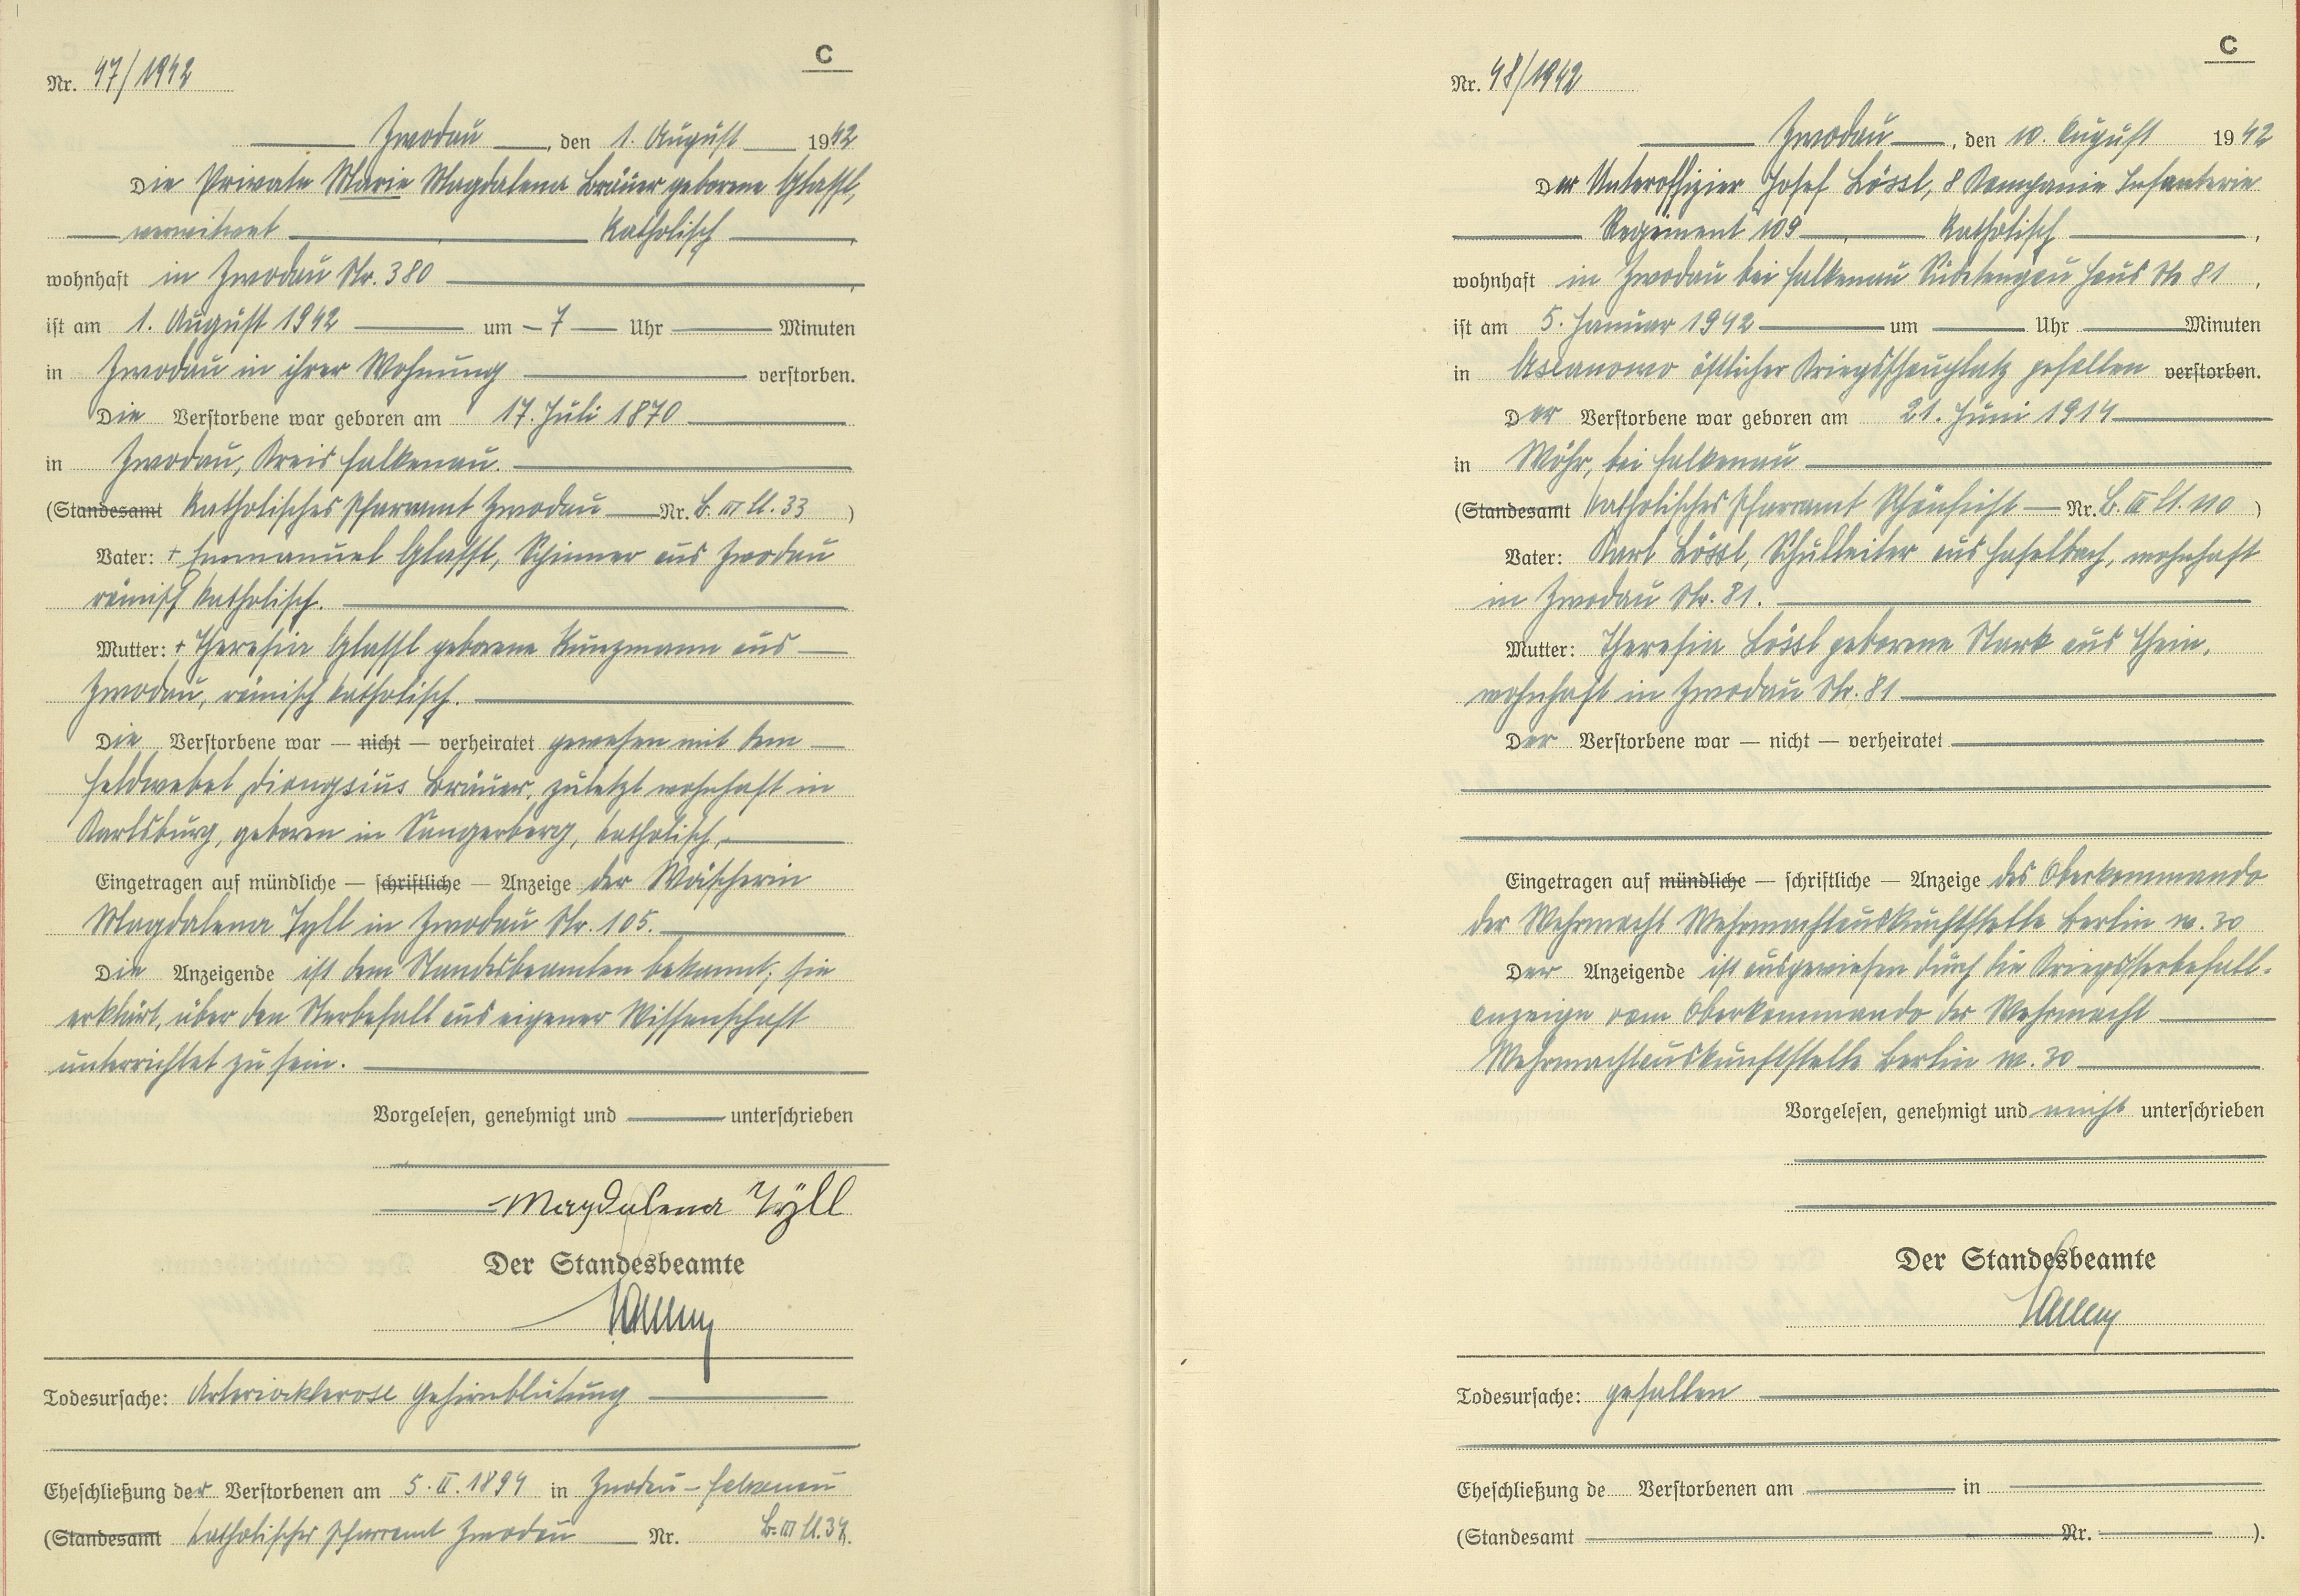 C
Nr. 47/1942
Zwodau, den 1. August 1942
Die Private Marie Magdalena Bräuer geborene Glassl,
verwitwet katholisch,
wohnhaft in Zwodau Nr. 380,
ist am 1. August 1942 um 7 Uhr Minuten
in Zwodau in ihrer Wohnung verstorben.
Die Verstorbene war geboren am 17. Juli 1870
in Zwodau, Kreis Falkenau.
(Standesamt Katholisches Pfarramt Zwodau Nr. B. III Bl. 33)
Vater: + Emmanuel Glassl, Schinner aus Zwodau
römisch katholisch.
Mutter: + Theresia Glassl geborene Kunzmann aus
Zwodau, römisch katholisch.
Die Verstorbene war — nicht — verheiratet gewesen mit dem
Feldwebel Dionysius Bräuer, zuletzt wohnhaft in
Karlsburg, geboren in Sangerberg, katholisch,
Eingetragen auf mündliche — schriftliche — Anzeige der Wäscherin
Magdalena Tyll in Zwodau Nr. 105.
Die Anzeigende ist dem Standesbeamten bekannt; sie
erklärt, über den Sterbefall aus eigener Wissenschaft
unterrichtet zu sein.
Vorgelesen, genehmigt und unterschrieben
Magdalena Tyll
Der Standesbeamte
Todesursache: Arteriosklerose Gehirnblutung
Eheschließung der Verstorbenen am 5. II. 1894 in Zwodau - Falkenau
(Standesamt katholisches Pfarramt Zwodau Nr. B. III Bl. 34).
C
Nr. 48/1942
Zwodau, den 10. August 1942
Der Unteroffizier Josef Lössl, 8 Kompanie Infanterie
Regiment 109, katholisch,
wohnhaft in Zwodau bei Falkenau Sudetengau Haus Nr 81,
ist am 5. Januar 1942 um Uhr Minuten
in Aslanowo östlicher Kriegsschauplatz gefallen verstorben.
Der Verstorbene war geboren am 21. Juni 1914
in Wöhr, bei Falkenau
(Standesamt katholisches Pfarramt Schönficht — Nr. B. III Bl. 110)
Vater: Karl Lössl, Schulleiter aus Haselbach, wohnhaft
in Zwodau Nr. 81.
Mutter: Theresia Lössl geborene Stark aus Thein,
wohnhaft in Zwodau Nr. 81
Der Verstorbene war — nicht — verheiratet
Eingetragen auf mündliche — schriftliche — Anzeige des Oberkommando
der Wehrmacht Wehrmachtauskunftstelle Berlin W. 30
Der Anzeigende ist ausgewiesen durch die Kriegssterbefall-
anzeige vom Oberkommando der Wehrmacht
Wehrmachtauskunftstelle Berlin W. 30
Vorgelesen, genehmigt und nicht unterschrieben
Der Standesbeamte
Todesursache: gefallen
Eheschließung de Verstorbenen am in
(Standesamt Nr. ).